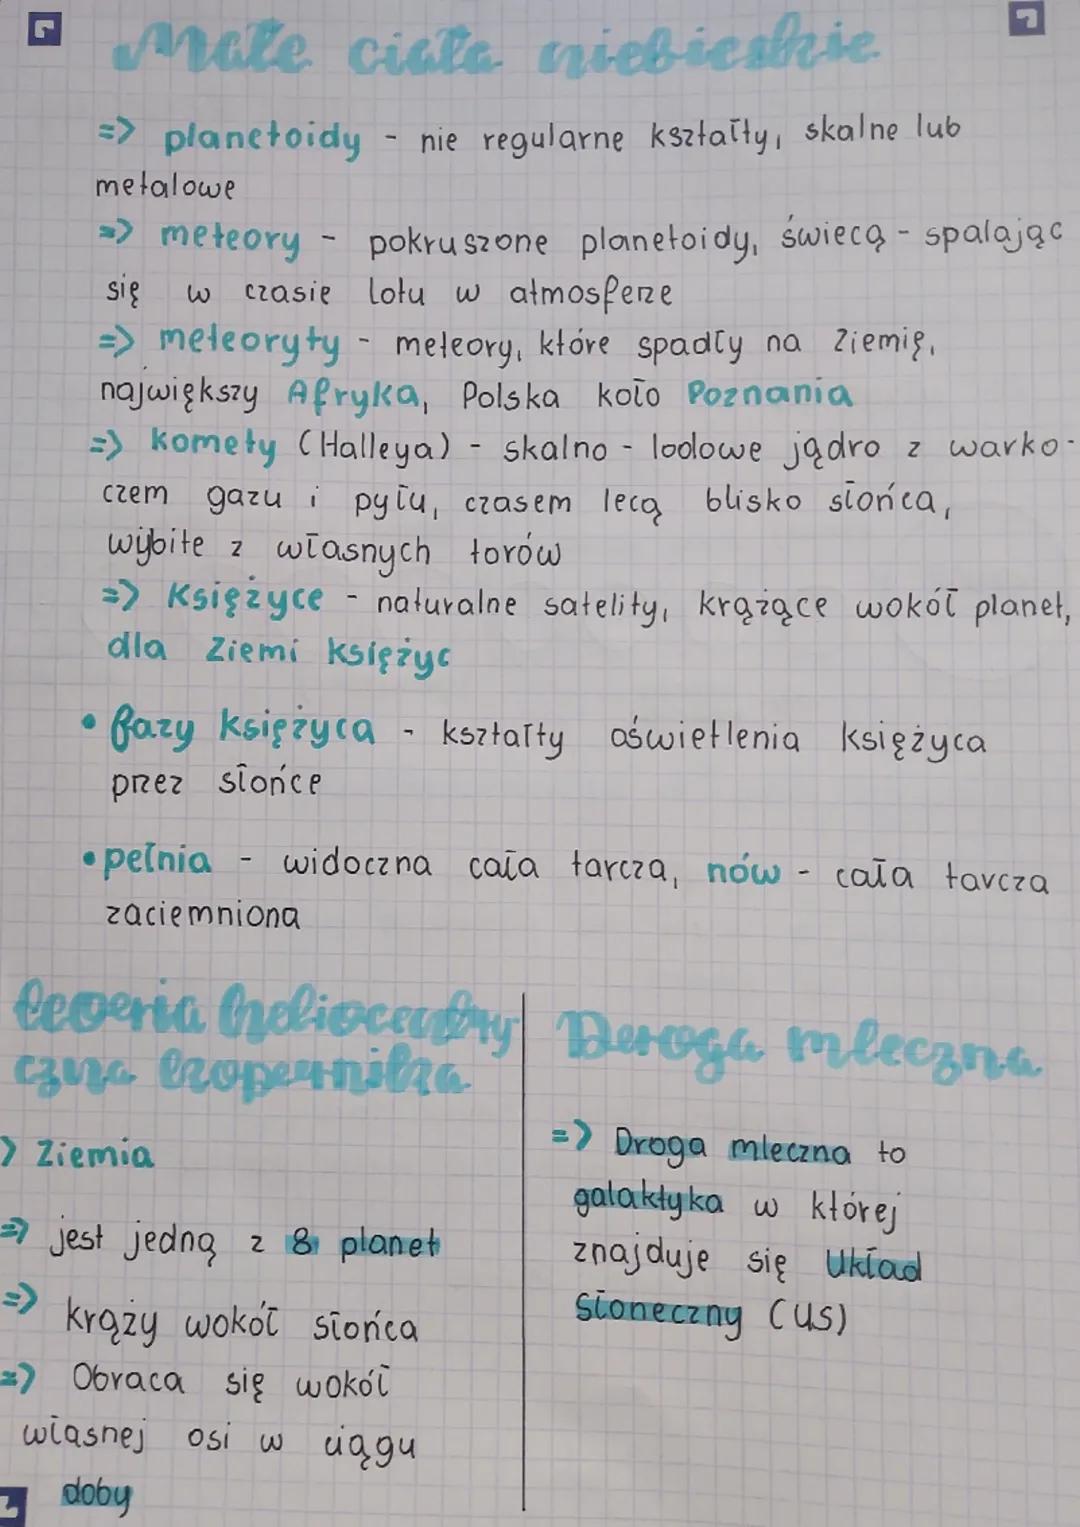 Małe ciała niebieskie
=> planetoidy - nie regularne kształty, skalne lub
metalowe
=> meteory - pokruszone planetoidy, świecą - spalając
się w czasie lotu w atmosferze
=> meteoryty - meteory, które spadły na Ziemię,
największy Afryka, Polska koło Poznania
=> komety (Halleya) - skalno - lodowe jądro z warko-
czem gazu i pyłu, czasem lecą blisko słońca,
wybite z własnych torów
=> Księżyce - naturalne satelity, krążące wokół planet,
dla Ziemi księżyc
• fazy księżyca - kształty oświetlenia księżyca
przez słońce
• pełnia - widoczna cała tarcza, nów - cała tarcza
zaciemniona
teoria heliocentry
czna kopernika
> Ziemia
=> jest jedną z 8 planet
=> krąży wokół słońca
=> Obraca się wokół
własnej osi w ciągu
doby
Droga mleczna
=> Droga mleczna to
galaktyka w której
znajduje się Układ
Słoneczny (US)